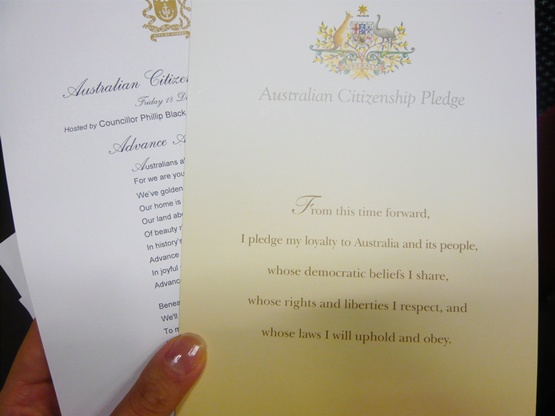 Australian
Friday 18
Hosted by Councillor Phillip Black
Advance
Australians
For we are you
We've golden
Our home is
Our land
Of beauty
In history's
Advance
In joyful
Advanc
Benea
We'll
To
Australian Citizenship Pledge
From this time forward,
I pledge my loyalty to Australia and its people,
whose democratic beliefs I share,
whose rights and liberties I respect, and
whose laws I will uphold and obey.